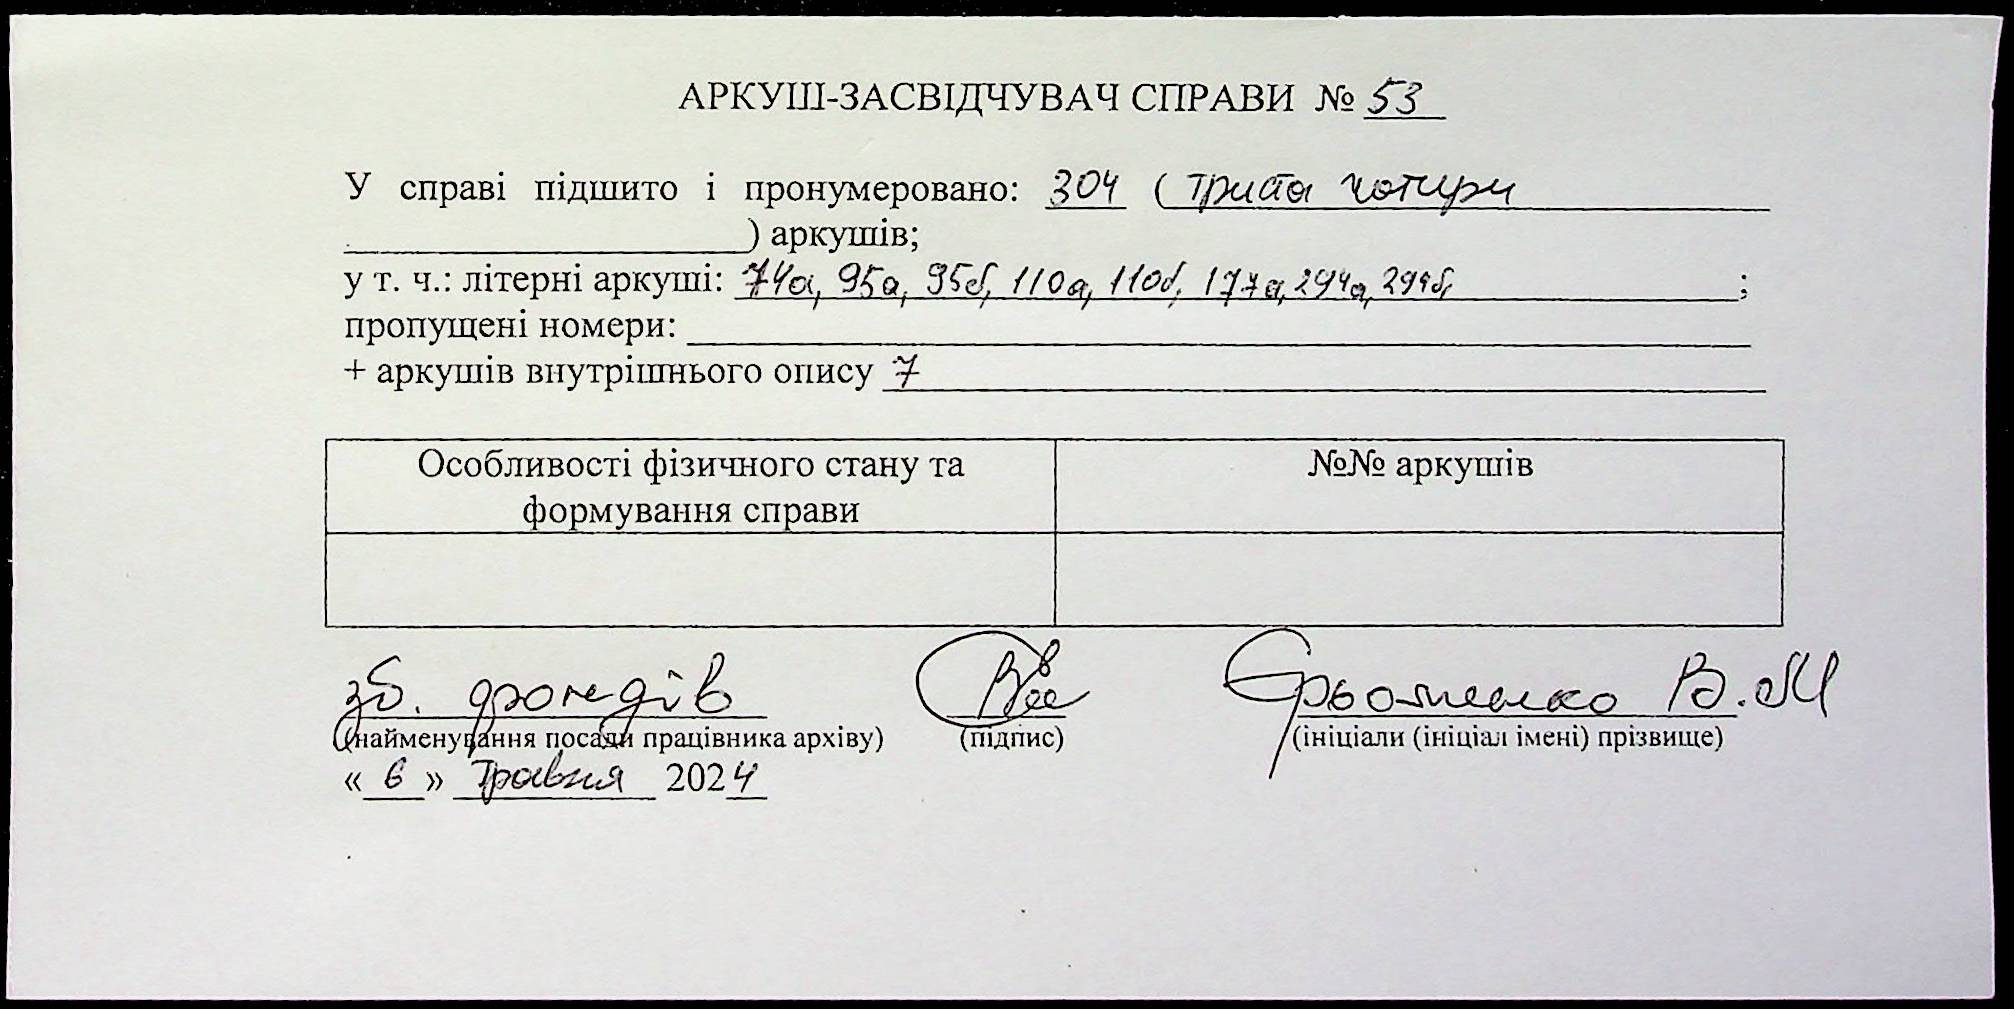 АРКУШ-ЗАСВІДЧУВАЧ СПРАВИ № 53
У справі підшито і пронумеровано: 304 ( триста чотири
) аркушів;
у т. ч.: літерні аркуші: 74а, 95а, 95б, 110а, 110б, 177а, 294а, 294б, ;
пропущені номери:
+ аркушів внутрішнього опису 7
Особливості фізичного стану та №№ аркушів
формування справи
зб. фондів Єрьоменко В.М
(найменування посади працівника архіву) (підпис) (ініціали (ініціал імені) прізвище)
« 6 » травня 2024